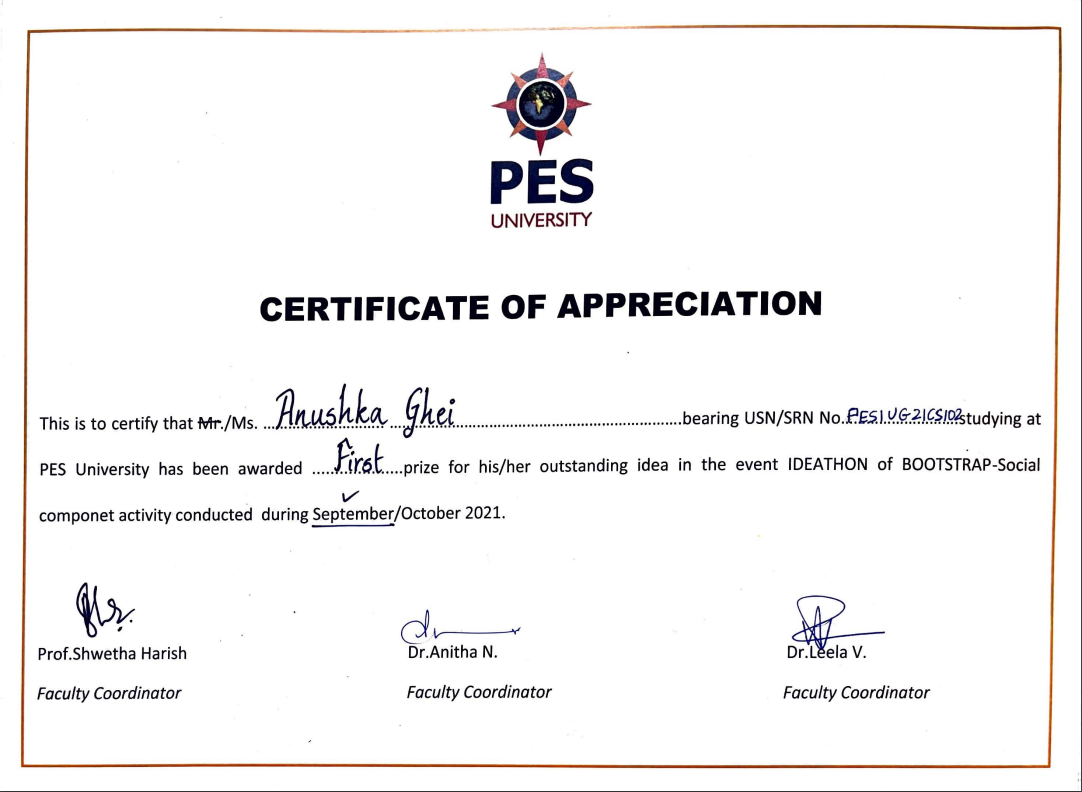 PES
UNIVERSITY
CERTIFICATE OF APPRECIATION
This is to certify that Mr./Ms. ...Anushka Ghei...bearing USN/SRN No.PES1UG21CS102studying at
PES University has been awarded .....First....prize for his/her outstanding idea in the event IDEATHON of BOOTSTRAP-Social
componet activity conducted during September/October 2021.
Prof.Shwetha Harish Dr.Anitha N. Dr.Leela V.
Faculty Coordinator Faculty Coordinator Faculty Coordinator